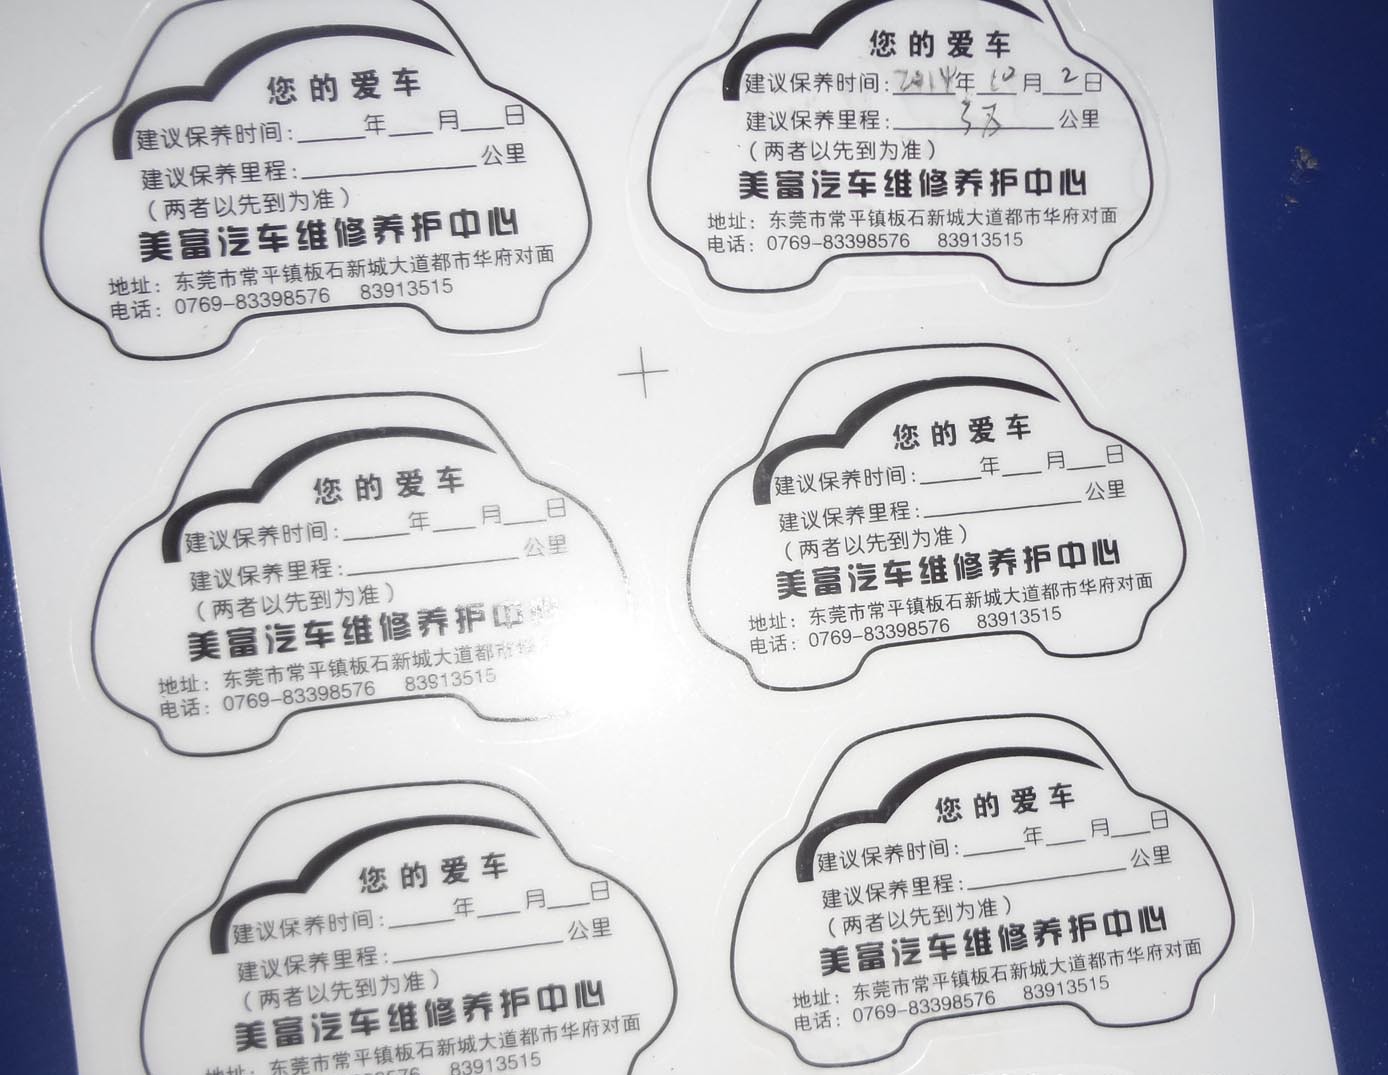 您的爱车
建议保养时间:____年___月___日
建议保养里程:____________公里
(两者以先到为准)
美富汽车维修养护中心
地址：东莞市常平镇板石新城大道都市华府对面
电话：0769-83398576 83913515
您的爱车
建议保养时间:2014年10月2日
建议保养里程:____________公里
(两者以先到为准)
美富汽车维修养护中心
地址：东莞市常平镇板石新城大道都市华府对面
电话：0769-83398576 83913515
您的爱车
建议保养时间:____年___月___日
建议保养里程:____________公里
(两者以先到为准)
美富汽车维修养护中
地址：东莞市常平镇板石新城大道都市
电话：0769-83398576 83913515
您的爱车
建议保养时间:____年___月___日
建议保养里程:____________公里
(两者以先到为准)
美富汽车维修养护中心
地址：东莞市常平镇板石新城大道都市华府对面
电话：0769-83398576 83913515
您的爱车
建议保养时间:____年___月___日
建议保养里程:____________公里
(两者以先到为准)
美富汽车维修养护中心
地址：东莞市常平镇板石新城大道都市华府对面
83913515
您的爱车
建议保养时间:____年___月___日
建议保养里程:____________公里
(两者以先到为准)
美富汽车维修养护中心
地址：东莞市常平镇板石新城大道都市华府对面
电话：0769-83398576 83913515